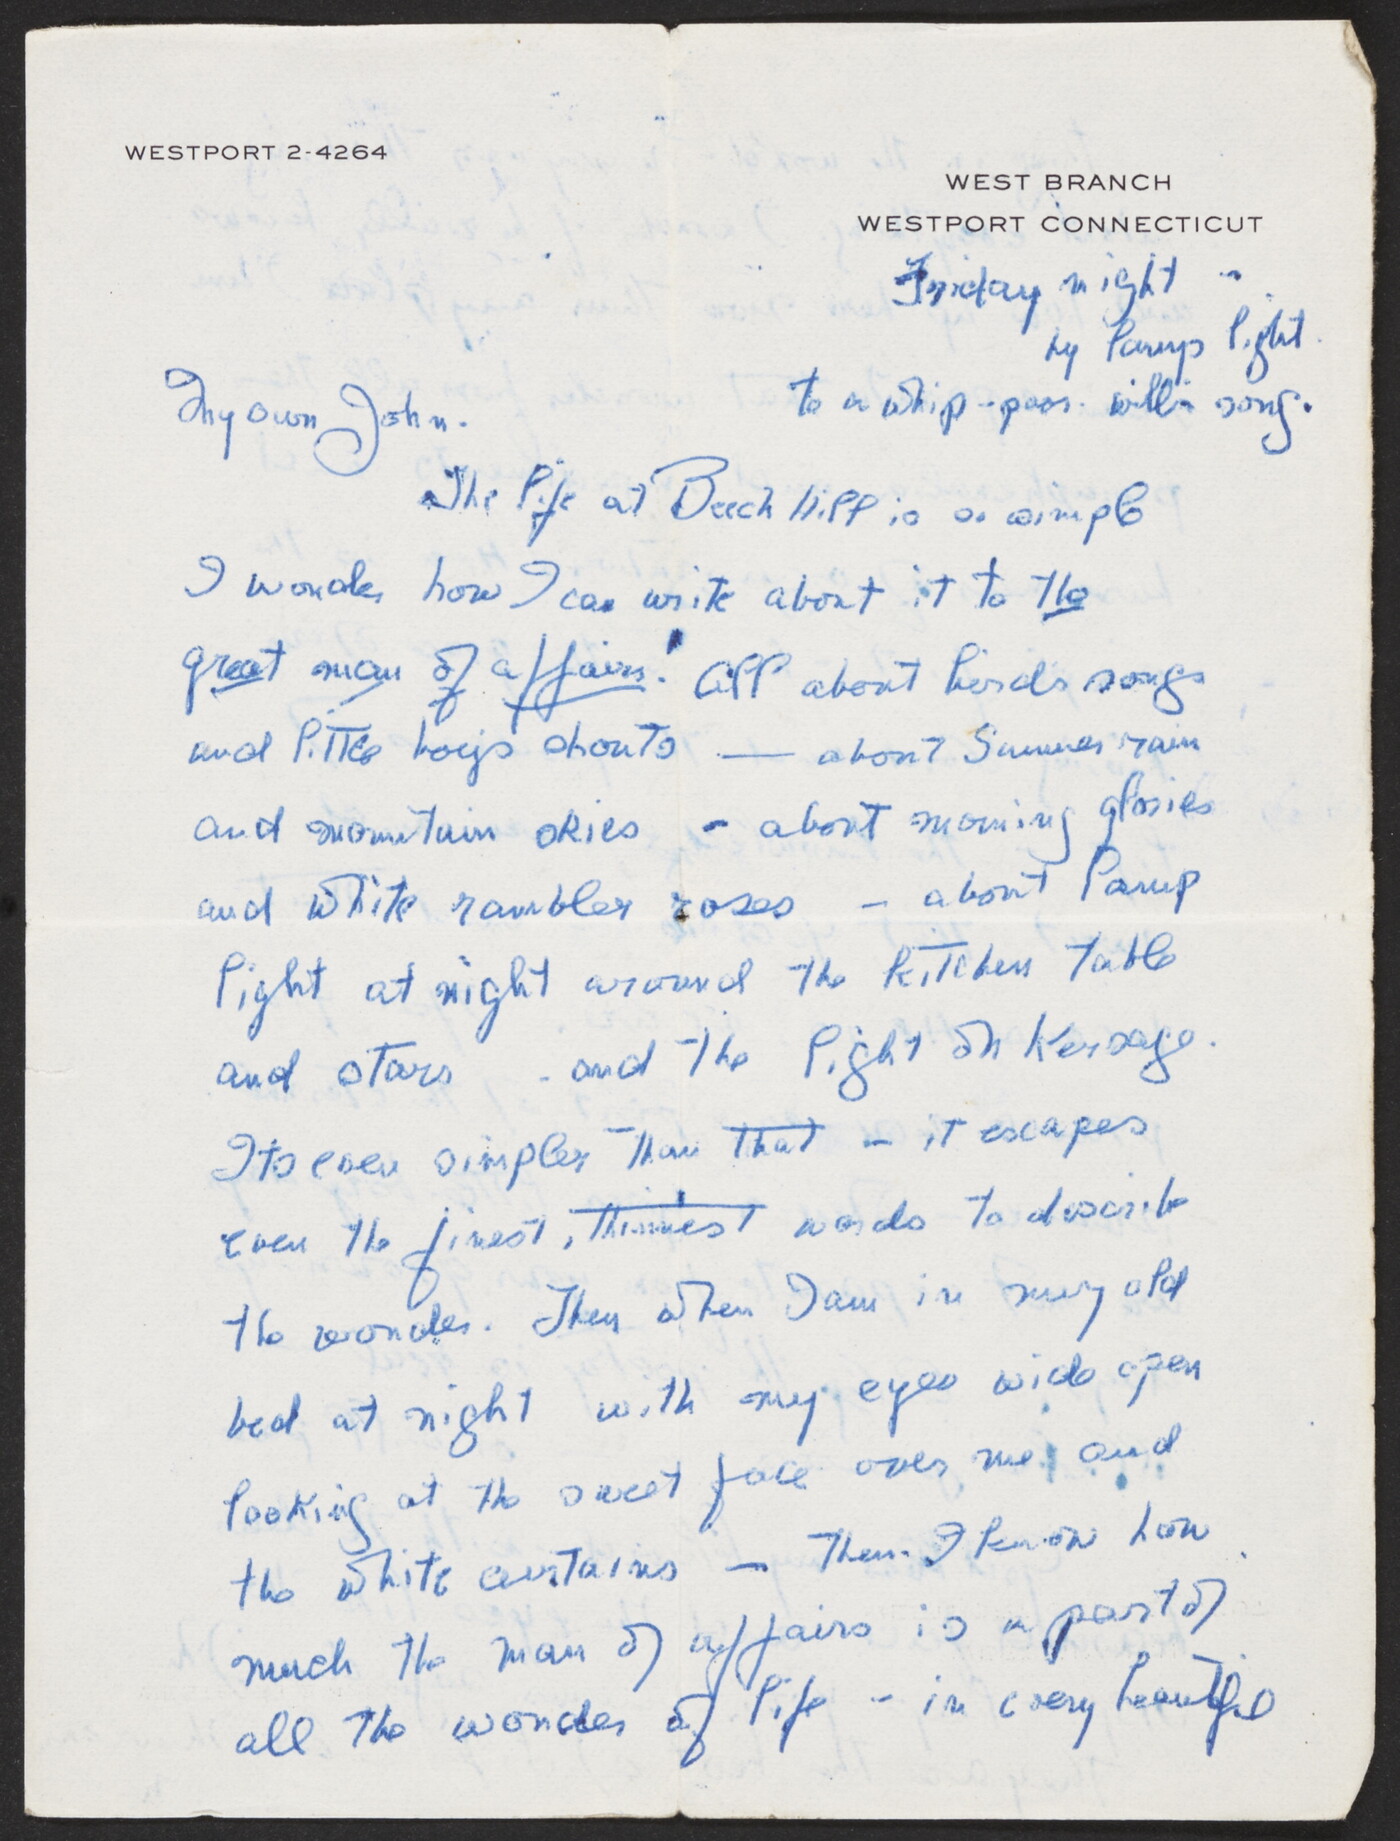 WESTPORT 2-4264
WEST BRANCH
WESTPORT CONNECTICUT
Friday night -
by lamp light.
to a whip-poor-will's song.
My own John.
The life at Beech Hill is so simple
I wonder how I can write about it to the
great man of affairs! All about birds songs
and little boys shouts — about Summer rain
and mountain skies - about morning glories
and white rambler roses - about lamp
light at night around the kitchen table
and stars - and the light on Kersage.
Its even simpler than that - it escapes
even the finest, thinnest words to describe
the wonder. Then when I am in my old
bed at night with my eyes wide open
looking at the sweet face over me and
the white curtains - then I know how
much the man of affairs is a part of
all the wonder of life - in every beautiful